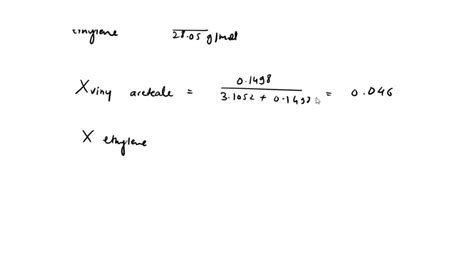 ethylene 28.05 g/mol
X viny acetate = 0.1498 / 3.1052 + 0.1498 = 0.046
X ethylene